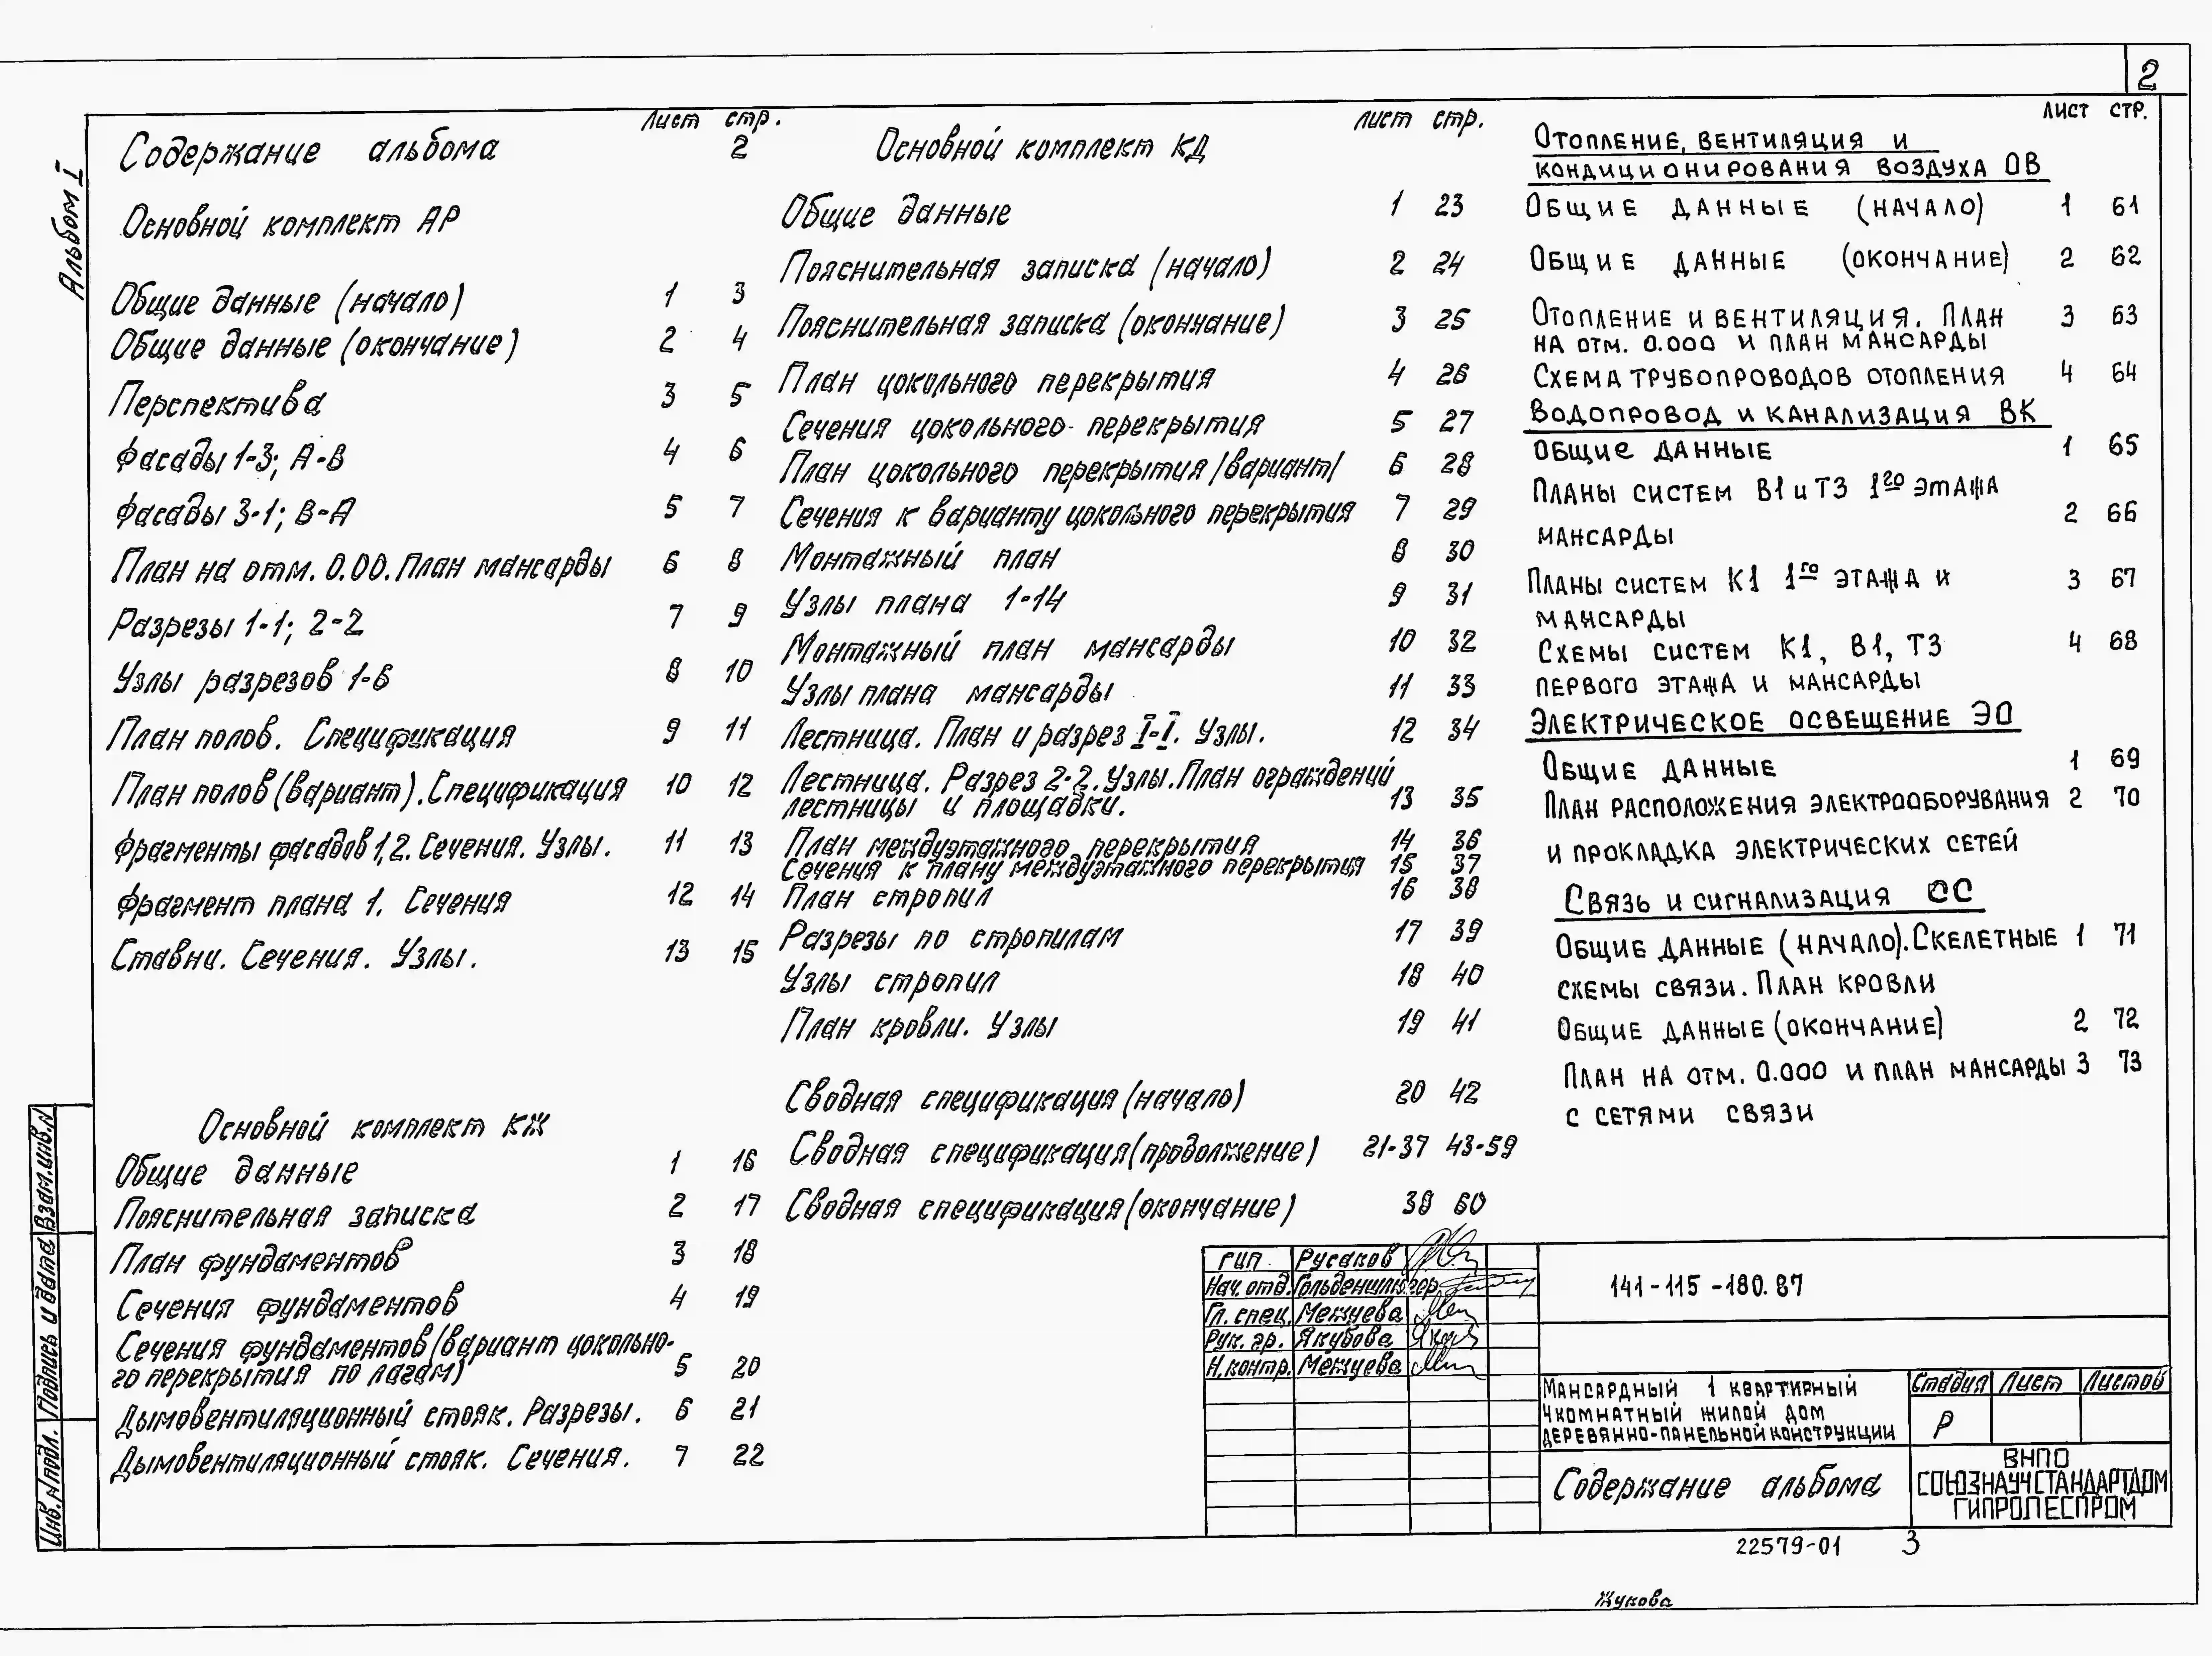 2
Альбом I
Лист стр.
Содержание альбома 2
Основной комплект АР
Общие данные (начало) 1 3
Общие данные (окончание) 2 4
Перспектива 3 5
Фасады 1-3; А-В 4 6
Фасады 3-1; В-А 5 7
План на отм. 0.00. План мансарды 6 8
Разрезы 1-1; 2-2 7 9
Узлы разрезов 1-6 8 10
План полов. Спецификация 9 11
План полов (вариант). Спецификация 10 12
Фрагменты фасадов 1,2. Сечения. Узлы. 11 13
Фрагмент плана 1. Сечения 12 14
Ставни. Сечения. Узлы. 13 15
Основной комплект КЖ
Общие данные 1 16
Пояснительная записка 2 17
План фундаментов 3 18
Сечения фундаментов 4 19
Сечения фундаментов (вариант цокольно-
го перекрытия по лагам) 5 20
Дымовентиляционный стояк. Разрезы. 6 21
Дымовентиляционный стояк. Сечения. 7 22
лист стр.
Основной комплект КД
Общие данные 1 23
Пояснительная записка (начало) 2 24
Пояснительная записка (окончание) 3 25
План цокольного перекрытия 4 26
Сечения цокольного перекрытия 5 27
План цокольного перекрытия /вариант/ 6 28
Сечения к варианту цокольного перекрытия 7 29
Монтажный план 8 30
Узлы плана 1-14 9 31
Монтажный план мансарды 10 32
Узлы плана мансарды 11 33
Лестница. План и разрез I-I. Узлы. 12 34
Лестница. Разрез 2-2. Узлы. План ограждений
лестницы и площадки. 13 35
План междуэтажного перекрытия 14 36
Сечения к плану междуэтажного перекрытия 15 37
План стропил 16 38
Разрезы по стропилам 17 39
Узлы стропил 18 40
План кровли. Узлы 19 41
Сводная спецификация (начало) 20 42
Сводная спецификация (продолжение) 21-37 43-59
Сводная спецификация (окончание) 38 60
Лист стр.
Отопление, вентиляция и
кондиционирования воздуха ОВ
Общие данные (начало) 1 61
Общие данные (окончание) 2 62
Отопление и вентиляция. План 3 63
на отм. 0.000 и план мансарды
Схема трубопроводов отопления 4 64
Водопровод и канализация ВК
Общие данные 1 65
Планы систем В1 и Т3 1го этажа
мансарды 2 66
Планы систем К1 1го этажа и 3 67
мансарды
Схемы систем К1, В1, Т3 4 68
первого этажа и мансарды
Электрическое освещение ЭО
Общие данные 1 69
План расположения электрооборувания 2 70
и прокладка электрических сетей
Связь и сигнализация СС
Общие данные (начало). Скелетные 1 71
схемы связи. План кровли
Общие данные (окончание) 2 72
План на отм. 0.000 и план мансарды 3 73
с сетями связи
ГИП Русаков
Нач. отд. Гольденшлюгер
Гл. спец. Межуева
Рук. гр. Якубова
Н. контр. Межуева
141-115-180.87
Мансардный 1 квартирный
4комнатный жилой дом
деревянно-панельной конструкции
Стадия Лист Листов
Р
Содержание альбома
ВНПО
СОЮЗНАУЧСТАНДАРТДОМ
ГИПРОЛЕСПРОМ
22579-01 3
Жукова
Взам. инв. N
Подпись и дата
Инв. N подл.